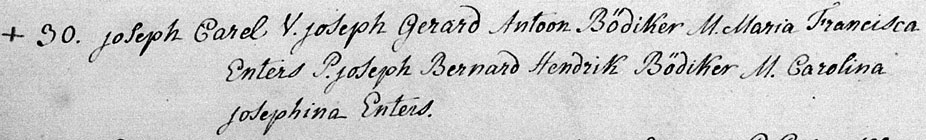 + 30. joseph Carel V. joseph Gerard Antoon Bödiker M. Maria Francisca
Enters P. joseph Bernard Hendrik Bödiker M. Carolina
josephina Enters.